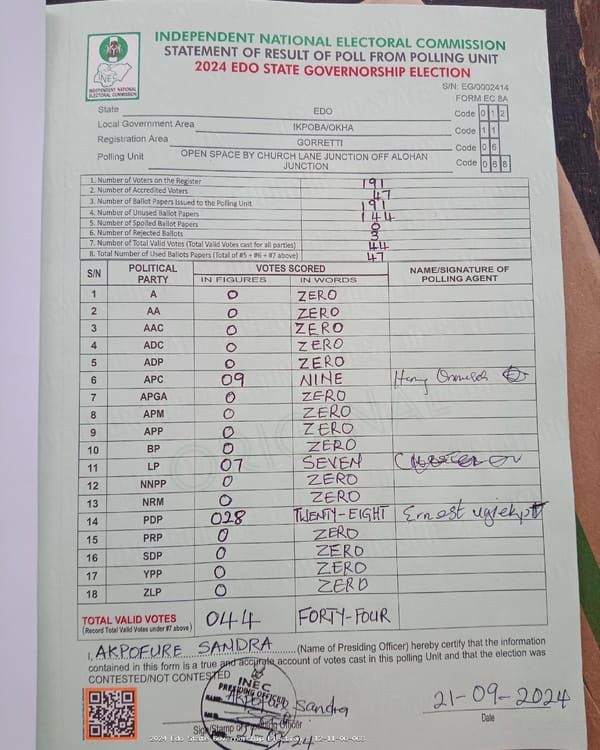 INDEPENDENT NATIONAL ELECTORAL COMMISSION
STATEMENT OF RESULT OF POLL FROM POLLING UNIT
2024 EDO STATE GOVERNORSHIP ELECTION
INEC
INDEPENDENT NATIONAL
ELECTORAL COMMISSION
S/N: EG/0002414
FORM EC 8A
State EDO Code 0 1 2
Local Government Area IKPOBA/OKHA Code 1 1
Registration Area GORRETTI Code 0 6
Polling Unit OPEN SPACE BY CHURCH LANE JUNCTION OFF ALOHAN JUNCTION Code 0 6 8
1. Number of Voters on the Register 191
2. Number of Accredited Voters 47
3. Number of Ballot Papers Issued to the Polling Unit 191
4. Number of Unused Ballot Papers 144
5. Number of Spoiled Ballot Papers 0
6. Number of Rejected Ballots 3
7. Number of Total Valid Votes (Total Valid Votes cast for all parties) 44
8. Total Number of Used Ballots Papers (Total of #5 + #6 + #7 above) 47
S/N POLITICAL PARTY VOTES SCORED NAME/SIGNATURE OF POLLING AGENT
IN FIGURES IN WORDS
1 A 0 ZERO
2 AA 0 ZERO
3 AAC 0 ZERO
4 ADC 0 ZERO
5 ADP 0 ZERO
6 APC 09 NINE
7 APGA 0 ZERO
8 APM 0 ZERO
9 APP 0 ZERO
10 BP 0 ZERO
11 LP 07 SEVEN
12 NNPP 0 ZERO
13 NRM 0 ZERO
14 PDP 028 TWENTY-EIGHT Ernest
15 PRP 0 ZERO
16 SDP 0 ZERO
17 YPP 0 ZERO
18 ZLP 0 ZERO
TOTAL VALID VOTES 044 FORTY-FOUR
(Record Total Valid Votes under #7 above)
I, AKPOFURE SANDRA (Name of Presiding Officer) hereby certify that the information
contained in this form is a true and accurate account of votes cast in this polling Unit and that the election was
CONTESTED/NOT CONTESTED
INEC
PRESIDING OFFICER
AKPOFURE Sandra
Sign/Stamp of Presiding Officer
21-09-2024
Date